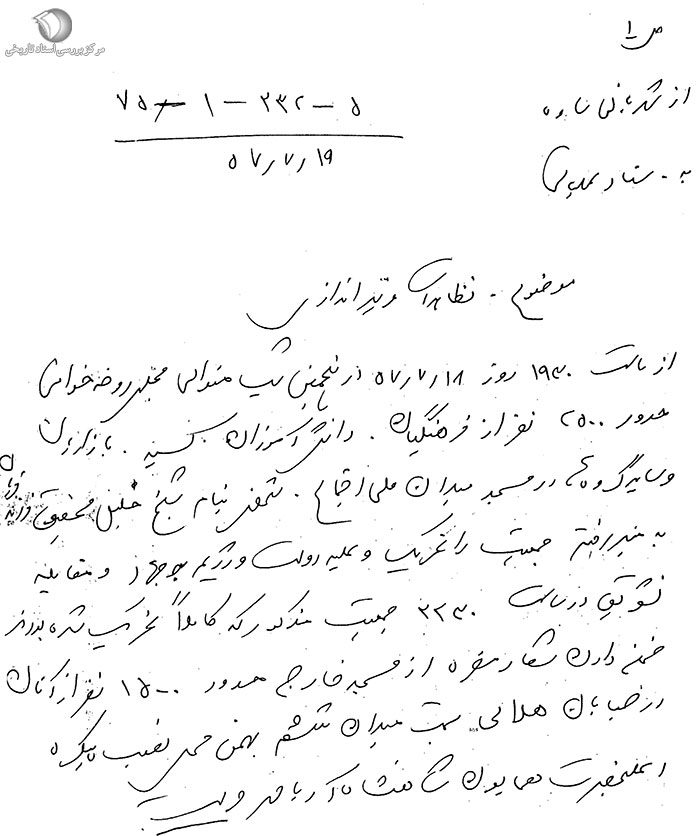 مرکز بررسی اسناد تاریخی
ص ۱
از شهربانی ساوه
۵ – ۲۳۲ – ۱ – ۷۵
۵۷/۷/۱۹
به - ستاد عملیاتی
موضوع - تظاهرات و تیراندازی
از ساعت ۱۹۳۰ روز ۵۷/۷/۱۸ در پنجمین شب متوالی مجلس روضه خوانی
حدود ۲۵۰۰ نفر از فرهنگیان . دانش آموزان . کسبه . بازاریان
و سایر گروه ها در مسجد میدان ملی اجتماع . شخصی بنام شیخ خلیل محققی
به منبر رفته جمعیت را تحریک و علیه دولت و رژیم موجود و مقابله
تشویق در ساعت ۲۲۳۰ جمعیت مذکور که کاملاً تحریک شده بودند
ضمن دادن شعار مضره از مسجد خارج حدود ۱۵۰۰ نفر از آنان
در خیابان هلالی بسمت میدان ششم بهمن محل نصب پیکره
اعلیحضرت همایون شاهنشاه آریامهر